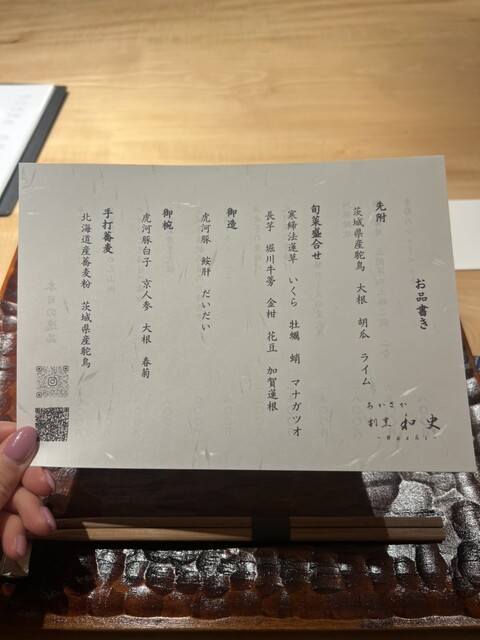 お品書き
先附
茨城県産鴕鳥 大根 胡瓜 ライム
旬菜盛合せ
寒締法蓮草 いくら 牡蠣 蛸 マナガツオ
長芋 堀川牛蒡 金柑 花豆 加賀蓮根
御造
虎河豚 鮟肝 だいだい
御椀
虎河豚白子 京人参 大根 春菊
手打蕎麦
北海道産蕎麦粉 茨城県産鴕鳥
あかさか
割烹 和史
本日の逸品